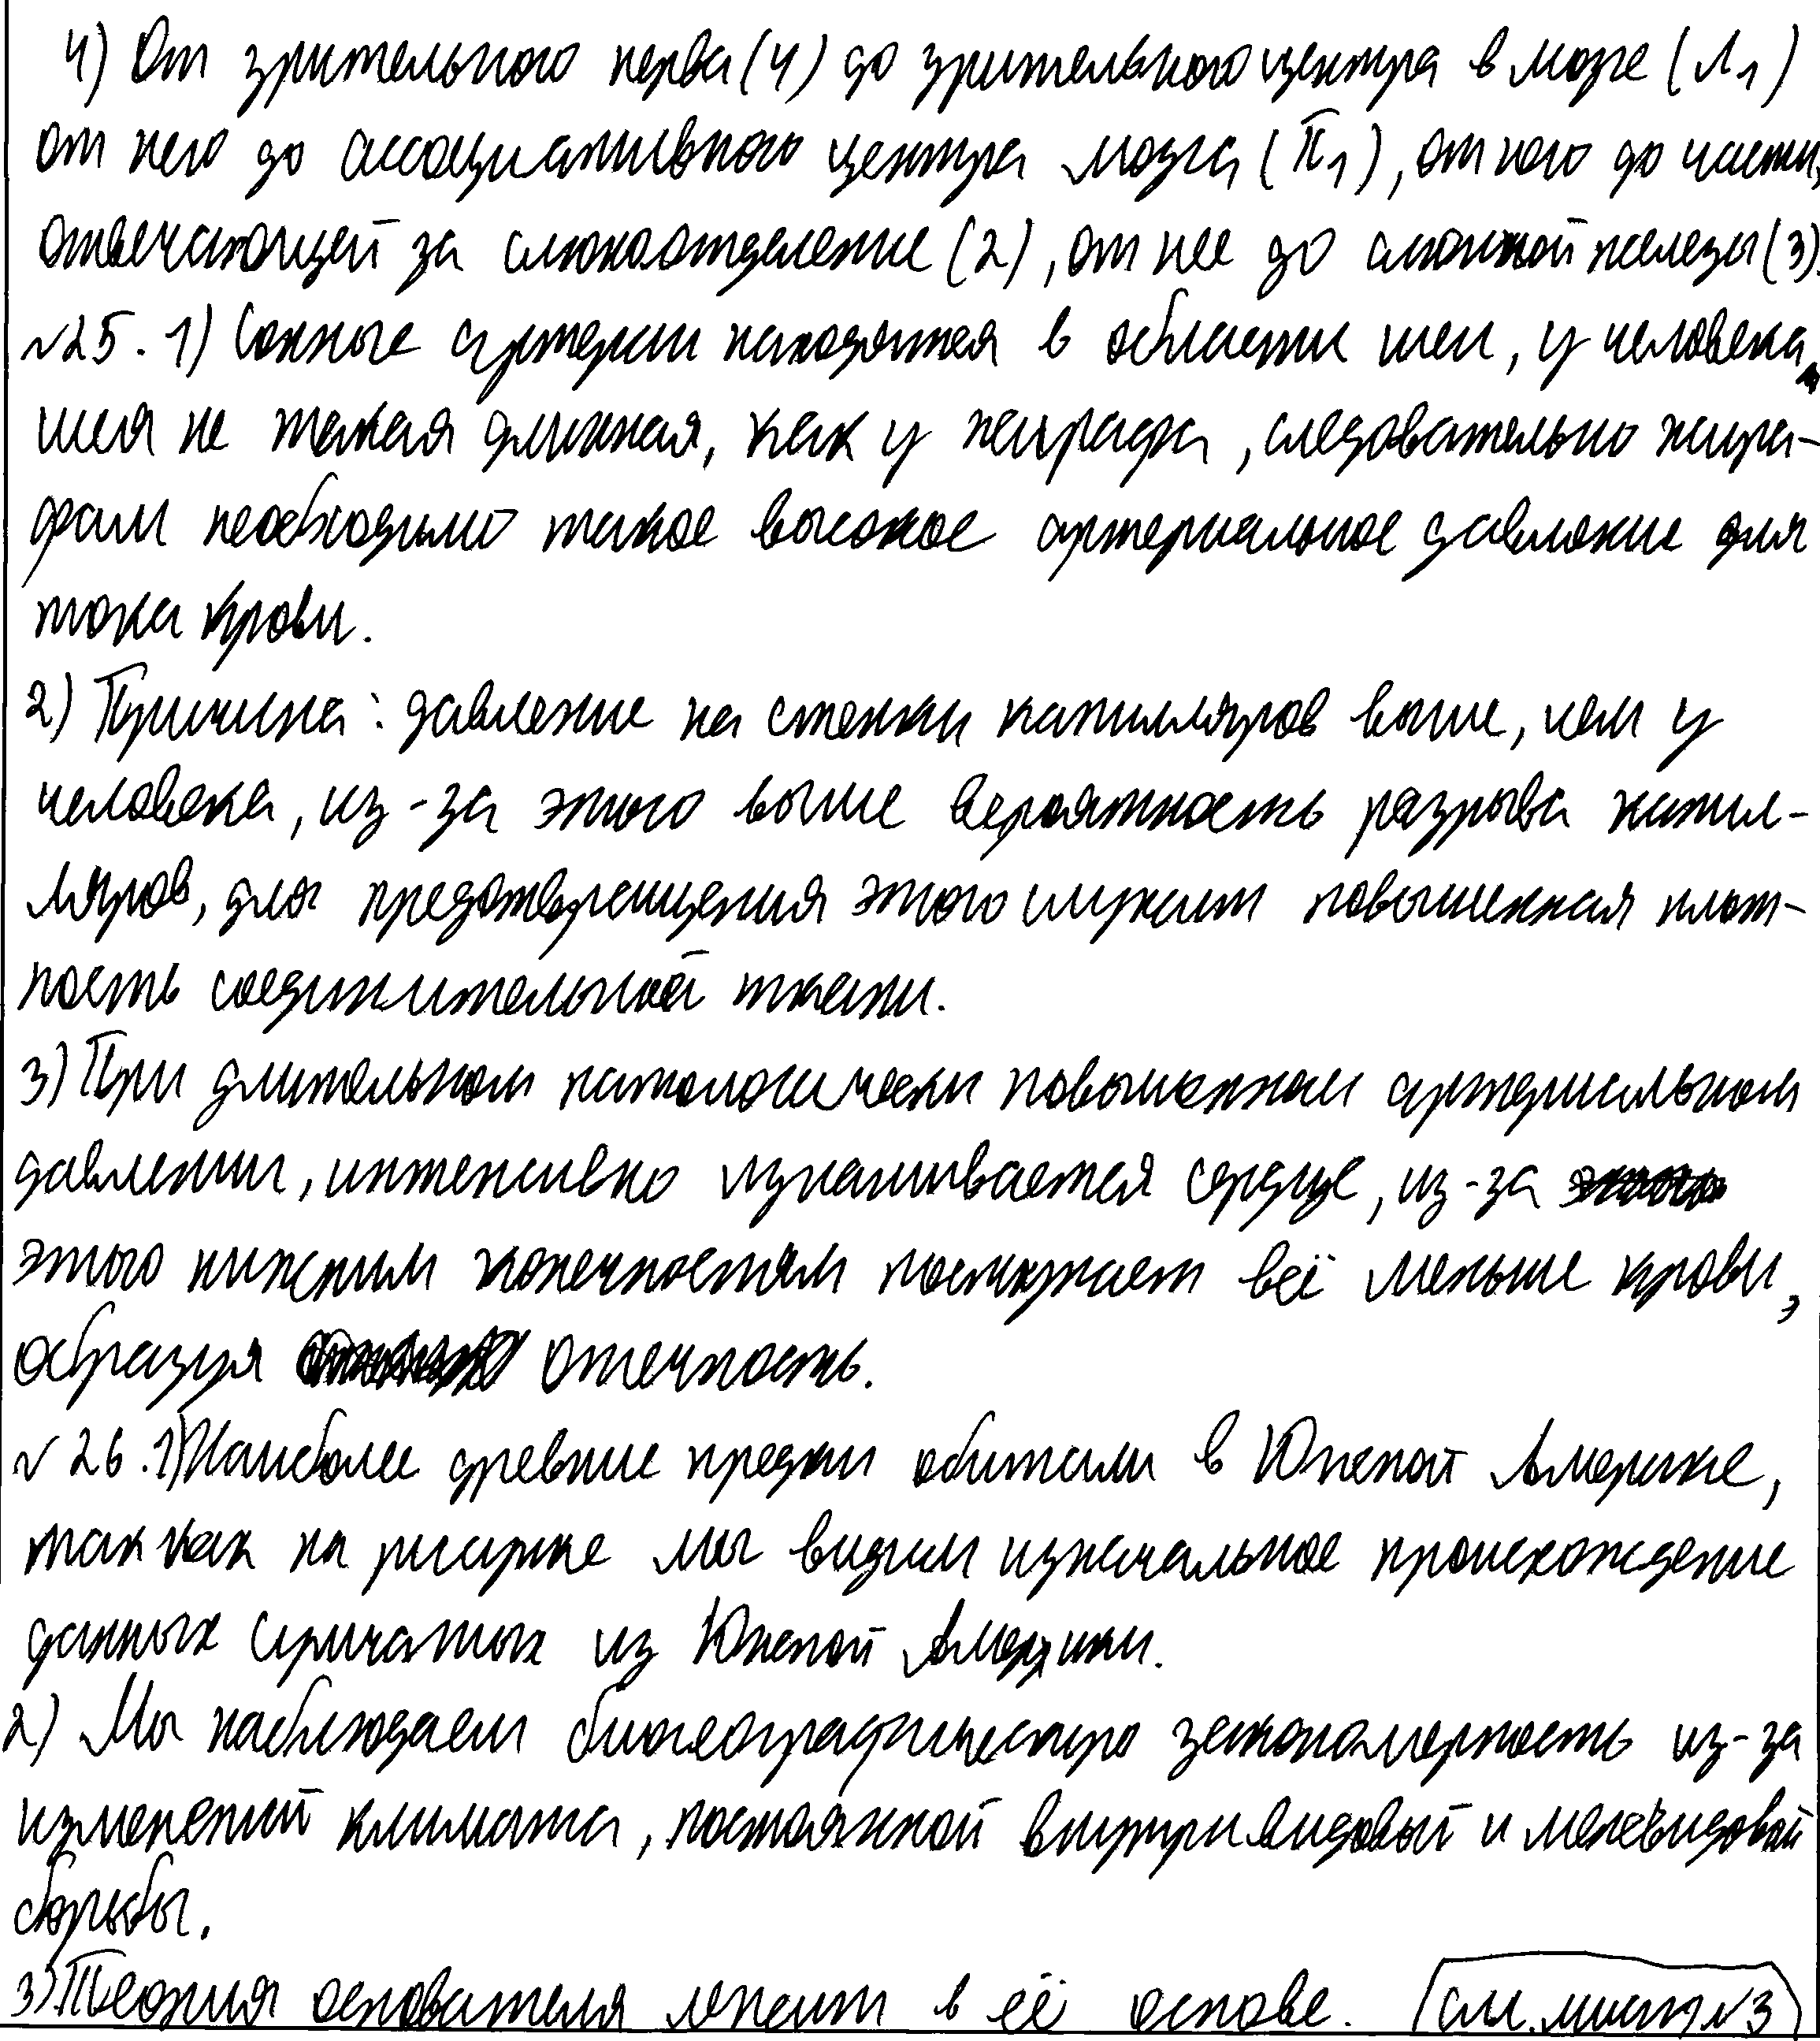 4) От зрительного нерва (4) до зрительного центра в мозге (Л1)
от него до ассоциативного центра мозга (П1), от него до части,
отвечающей за слюноотделение (2), от нее до слюнной железы (3).
№25. 1) Сонные артерии находятся в области шеи, у человека
шея не такая длинная, как у жирафа, следовательно жира-
фам необходимо такое высокое артериальное давление для
тока крови.
2) Причина: давление на стенки капилляров выше, чем у
человека, из-за этого выше вероятность разрыва капил-
ляров, для предотвращения этого служит повышенная плот-
ность соединительной ткани.
3) При длительном патологически повышенном артериальном
давлении, интенсивно изнашивается сердце, из-за
этого нижним конечностям поступает всё меньше крови,
образуя отечность.
№26. 1) Наиболее древние предки обитали в Южной Америке,
так как на рисунке мы видим изначальное происхождение
данных сумчатых из Южной Америки.
2) Мы наблюдаем биогеографическую закономерность из-за
изменений климата, постоянной внутривидовый и межвидовой
борьбы.
3) Теория основателя лежит в её основе. (см. лист №3)